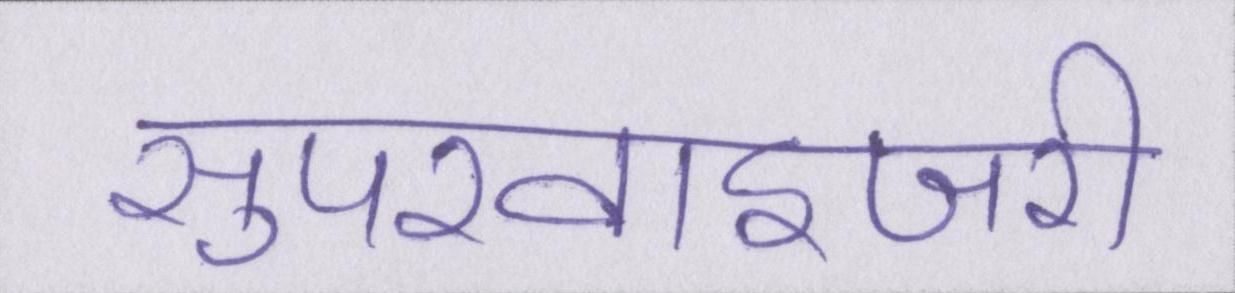 सुपरवाइजरी